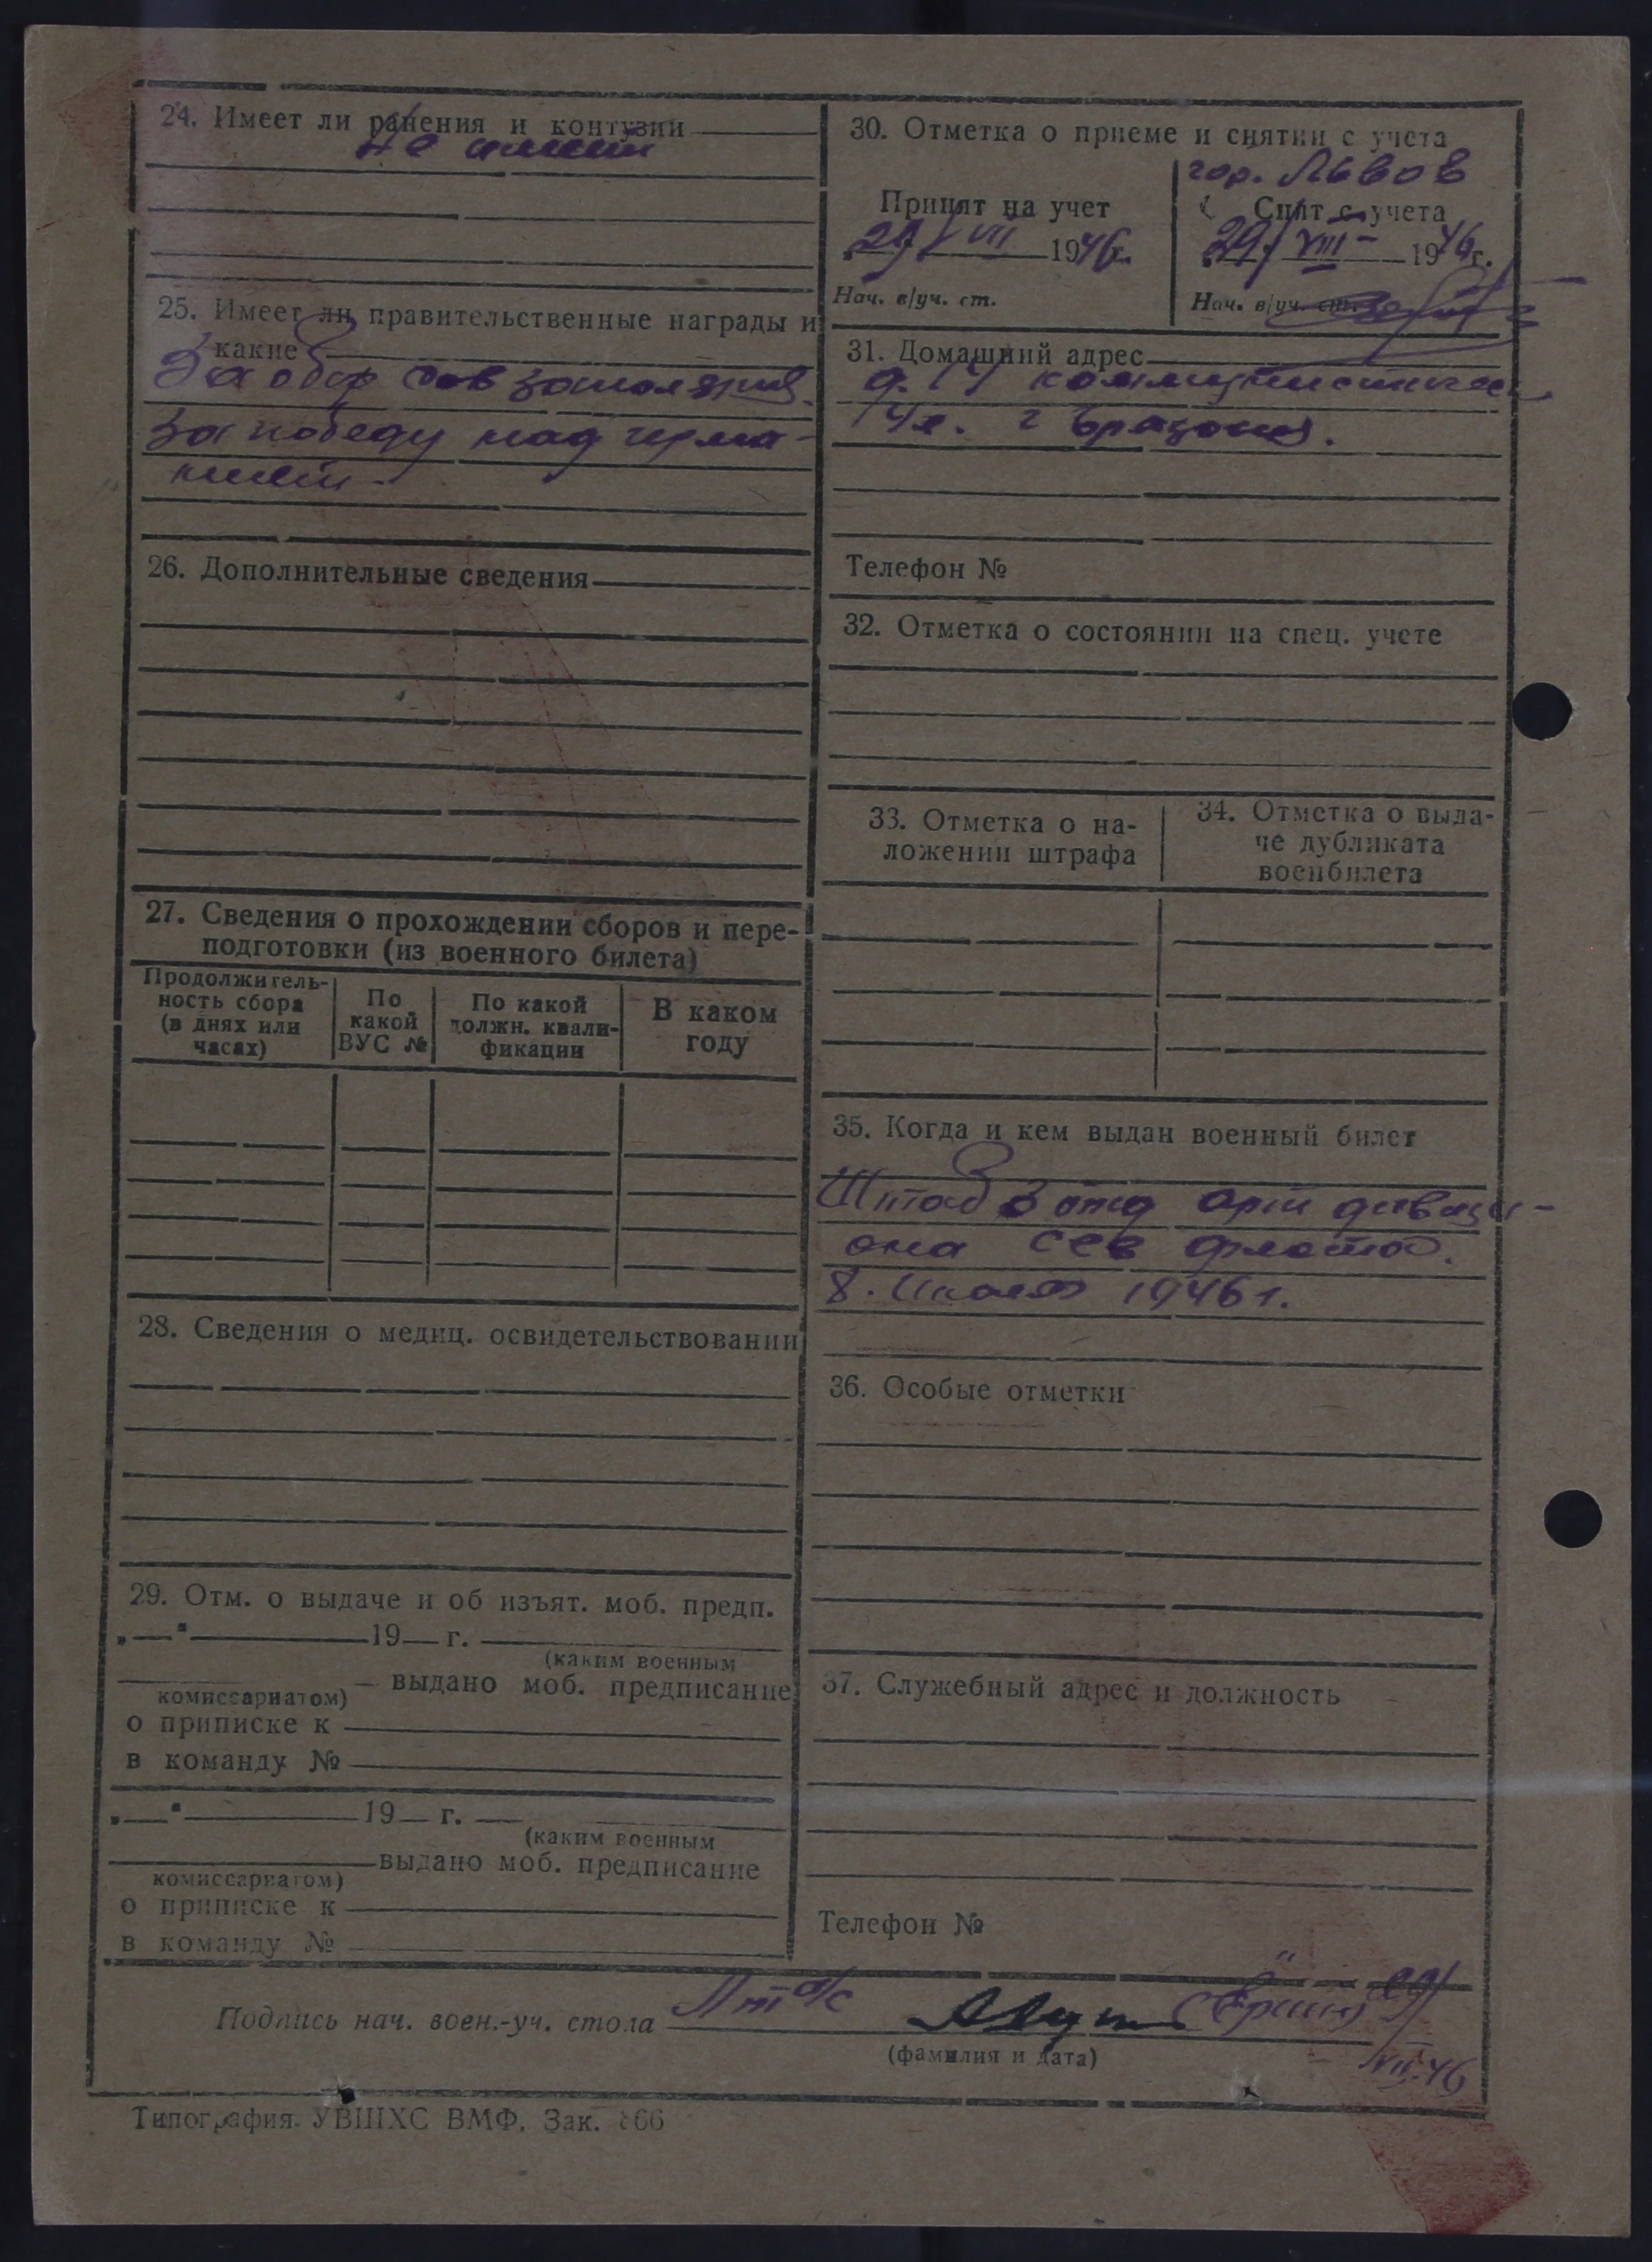 24. Имеет ли ранения и контузии
не имеет
25. Имеет ли правительственные награды и
какие
За обор сов заполярия.
За победу над герма-
нией.
26. Дополнительные сведения
27. Сведения о прохождении сборов и пере-
подготовки (из военного билета)
Продолжитель-
ность сбора
(в днях или
часах)
По
какой
ВУС №
По какой
должн. квали-
фикации
В каком
году
28. Сведения о медиц. освидетельствовании
29. Отм. о выдаче и об изъят. моб. предп.
„ “ 19 г.
(каким военным
комиссариатом)
выдано моб. предписание
о приписке к
в команду №
„ “ 19 г.
(каким военным
комиссариатом)
выдано моб. предписание
о приписке к
в команду №
30. Отметка о приеме и снятии с учета
гор. Львов
Принят на учет
29/VII 1946г.
Нач. в/уч. ст.
Снят с учета
29/VIII 1946г.
Нач. в/уч. ст.
31. Домашний адрес
г
Телефон №
32. Отметка о состоянии на спец. учете
33. Отметка о на-
ложении штрафа
34. Отметка о выда-
че дубликата
военбилета
35. Когда и кем выдан военный билет
Штаб 3 отд арт дивизи-
она сев флота.
8. 1946г.
36. Особые отметки
37. Служебный адрес и должность
Телефон №
Подпись нач. воен.-уч. стола
Лт а/с
29/
VII.46
(фамилия и дата)
Типография УВШХС ВМФ. Зак. 866